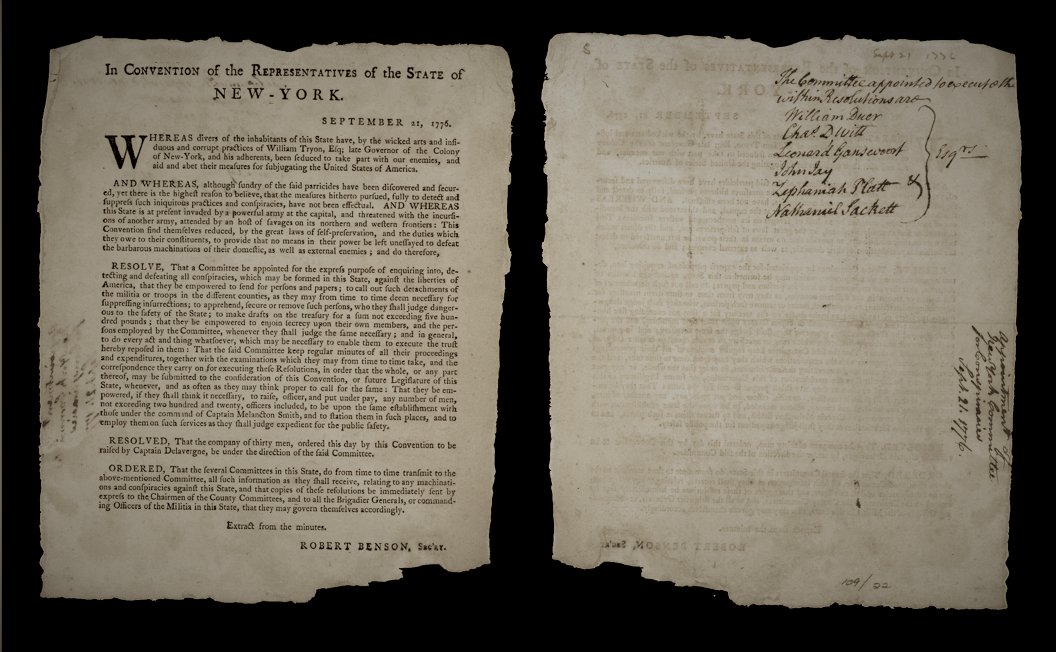 In CONVENTION of the REPRESENTATIVES of the STATE of
NEW-YORK.
SEPTEMBER 21, 1776.
WHEREAS divers of the inhabitants of this State have, by the wicked arts and insi-
duous and corrupt practices of William Tryon, Esq; late Governor of the Colony
of New-York, and his adherents, been seduced to take part with our enemies, and
aid and abet their measures for subjugating the United States of America.
AND WHEREAS, although sundry of the said parricides have been discovered and secur-
ed, yet there is the highest reason to believe, that the measures hitherto pursued, fully to detect and
suppress such iniquitous practices and conspiracies, have not been effectual. AND WHEREAS
this State is at present invaded by a powerful army at the capital, and threatened with the incursi-
ons of another army, attended by an host of savages on its northern and western frontiers: This
Convention find themselves reduced, by the great laws of self-preservation, and the duties which
they owe to their constituents, to provide that no means in their power be left unessayed to defeat
the barbarous machinations of their domestic, as well as external enemies; and do therefore,
RESOLVE, That a Committee be appointed for the express purpose of enquiring into, de-
tecting and defeating all conspiracies, which may be formed in this State, against the liberties of
America, that they be empowered to send for persons and papers; to call out such detachments of
the militia or troops in the different counties, as they may from time to time deem necessary for
suppressing insurrections; to apprehend, secure or remove such persons, who they shall judge danger-
ous to the safety of the State; to make drafts on the treasury for a sum not exceeding five hun-
dred pounds; that they be empowered to enjoin secrecy upon their own members, and the per-
sons employed by the Committee, whenever they shall judge the same necessary; and in general,
to do every act and thing whatsoever, which may be necessary to enable them to execute the trust
hereby reposed in them: That the said Committee keep regular minutes of all their proceedings
and expenditures, together with the examinations which they may from time to time take, and the
correspondence they carry on for executing these Resolutions, in order that the whole, or any part
thereof, may be submitted to the consideration of this Convention, or future Legislature of this
State, whenever, and as often as they may think proper to call for the same: That they be em-
powered, if they shall think it necessary, to raise, officer, and put under pay, any number of men,
not exceeding two hundred and twenty, officers included, to be upon the same establishment with
those under the command of Captain Melancton Smith, and to station them in such places, and to
employ them on such services as they shall judge expedient for the public safety.
RESOLVED, That the company of thirty men, ordered this day by this Convention to be
raised by Captain Delavergne, be under the direction of the said Committee.
ORDERED, That the several Committees in this State, do from time to time transmit to the
above-mentioned Committee, all such information as they shall receive, relating to any machinati-
ons and conspiracies against this State, and that copies of these resolutions be immediately sent by
express to the Chairmen of the County Committees, and to all the Brigadier Generals, or command-
ing Officers of the Militia in this State, that they may govern themselves accordingly.
Extract from the minutes.
ROBERT BENSON, Sec'ry.
Sept 21 1776
The Committee appointed to execute the
within Resolutions are
William Duer
Chas. DWitt
Leonard Gansevoort
John Jay
Zephaniah Platt &
Nathaniel Sackett
Esqrs.
Appointment of
New York Committee
for Conspiracies
Sept. 21. 1776.
109/22